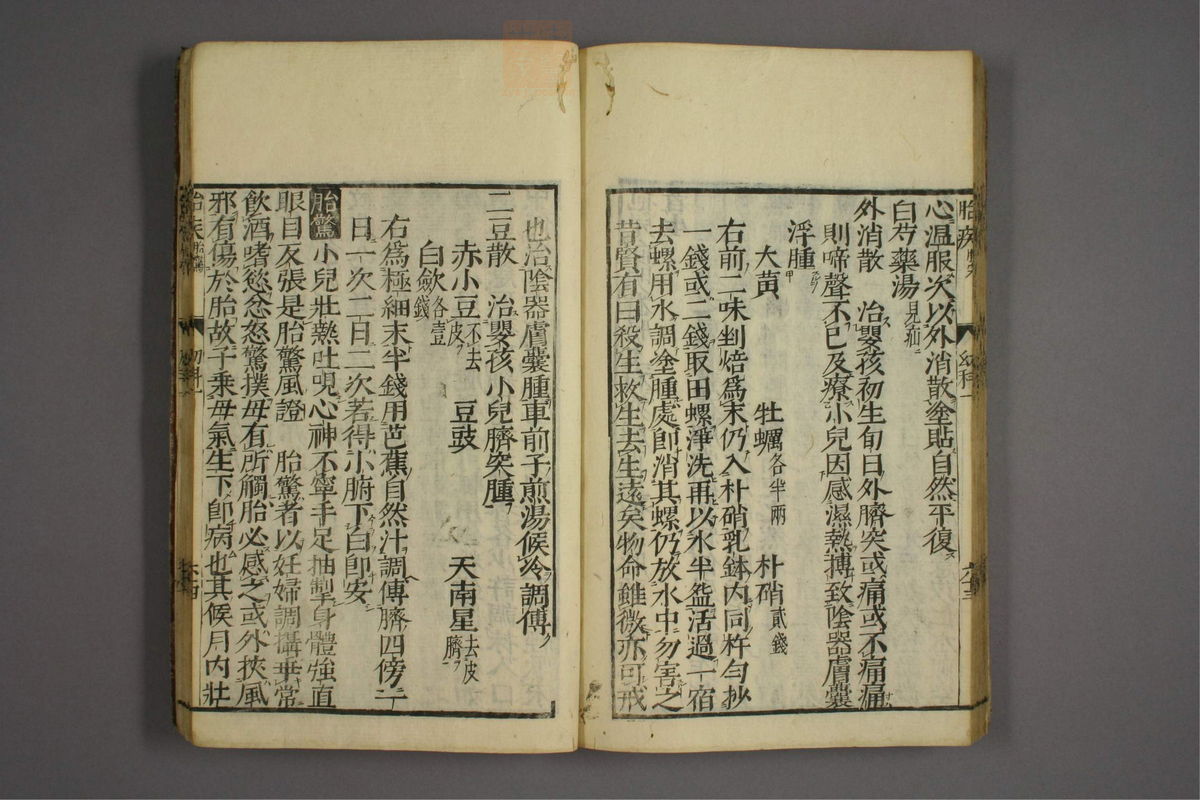 心溫服次以外消散塗貼自然平復
白芍藥湯見疝
外消散 治嬰孩初生旬日外臍突或痛或不痛痛
則啼聲不已及療小兒因感濕熱搏致陰器膚囊
浮腫
大黃 牡蠣各半兩 朴硝貳錢
右前二味剉焙爲末仍入朴硝乳鉢内同杵勻抄
一錢或二錢取田螺淨洗再以水半盌活過一宿
去螺用水調塗腫處卽消其螺仍放水中勿害之
昔賢有曰殺生救生去生遠矣物命雖微亦可戒
也治陰器膚囊腫車前子煎湯候冷調傅
二豆散 治嬰孩小兒臍突腫
赤小豆不去皮 豆豉 天南星去皮臍
白歛各壹錢
右爲極細末半錢用芭蕉自然汁調傅臍四傍一
日一次二日二次若得小腑下白卽安
胎驚 小兒壯熱吐哯心神不寧手足抽掣身體強直
眼目反張是胎驚風證 胎驚者以妊婦調攝乖常
飲酒嗜慾忿怒驚撲母有所觸胎必感之或外挾風
邪有傷於胎故子乘母氣生下卽病也其候月内壯